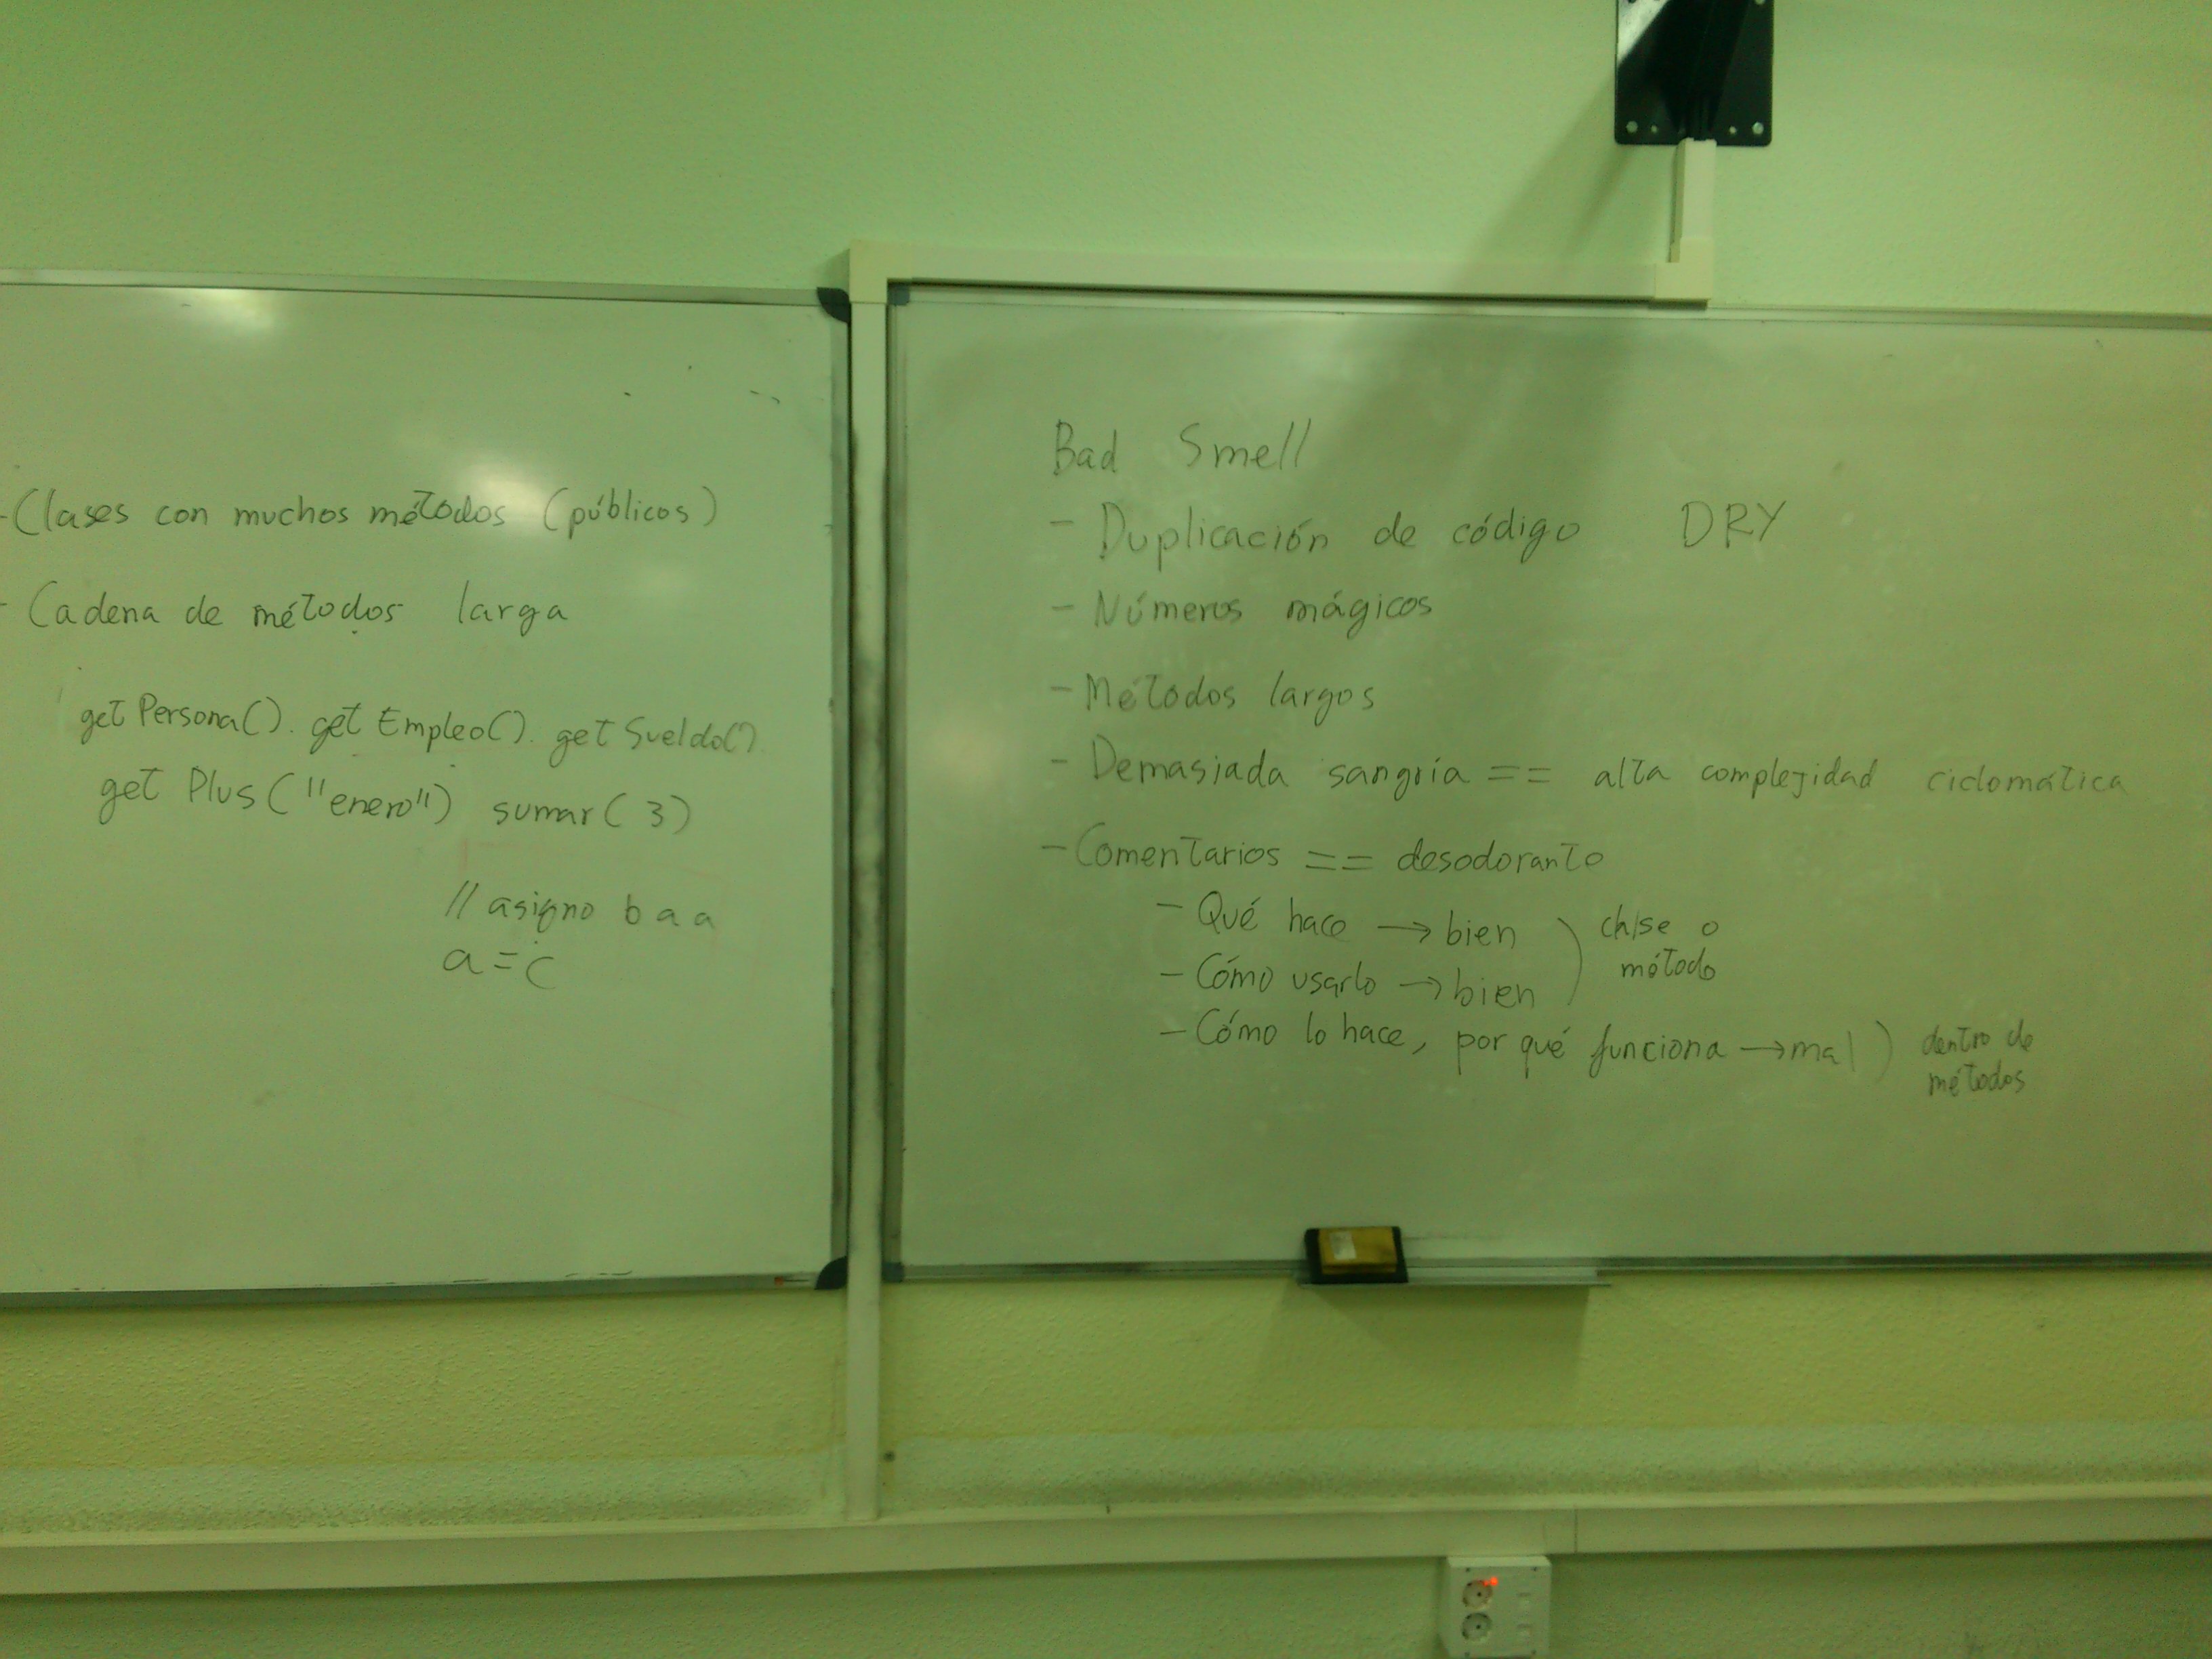 - Clases con muchos métodos (públicos)
- Cadena de métodos larga
getPersona(). getEmpleo(). getSueldo().
getPlus("enero") sumar(3)
// asigno b a a
a=c
Bad Smell
- Duplicación de código DRY
- Números mágicos
- Métodos largos
- Demasiada sangría == alta complejidad ciclomática
- Comentarios == desodorante
- Qué hace → bien ) clase o
- Cómo usarlo → bien ) método
- Cómo lo hace, por qué funciona → mal ) dentro de
métodos